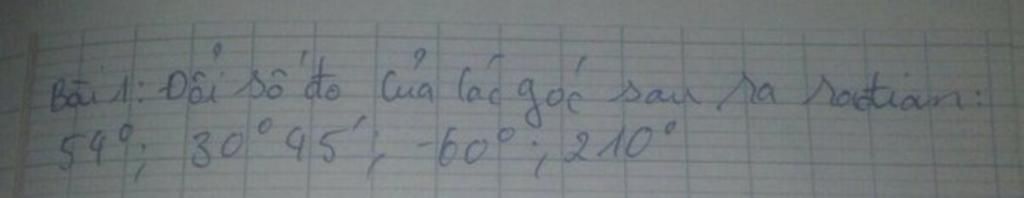 Bài 1: Đổi số đo của các góc sau ra rađian:
54°; 30° 45'; -60°; 210°